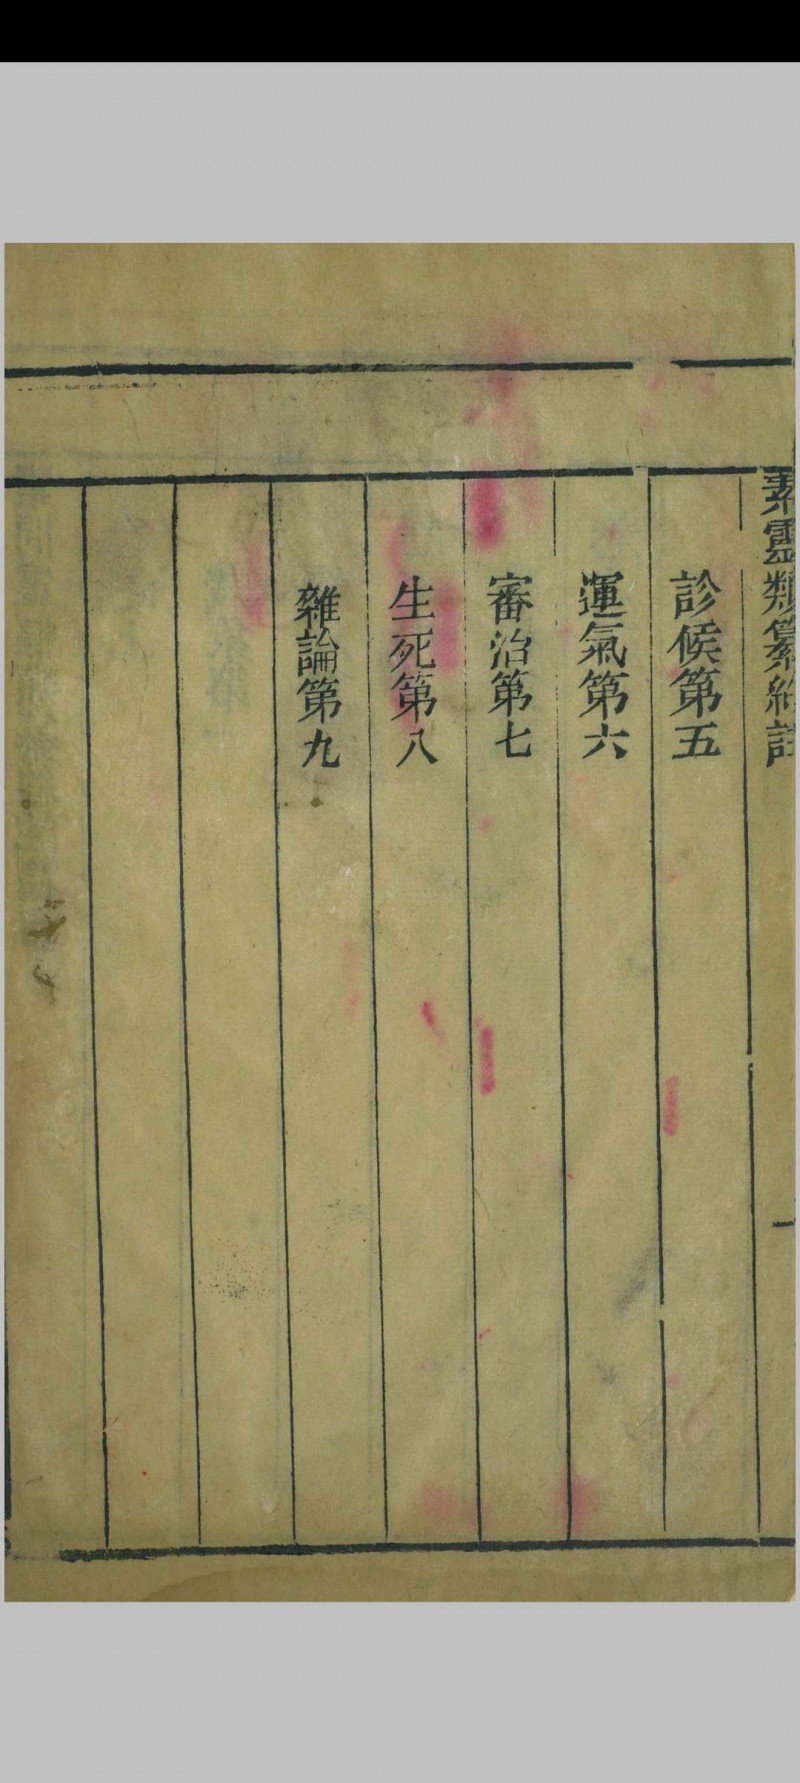 素靈類纂約註
診候第五
運氣第六
審治第七
生死第八
雜論第九